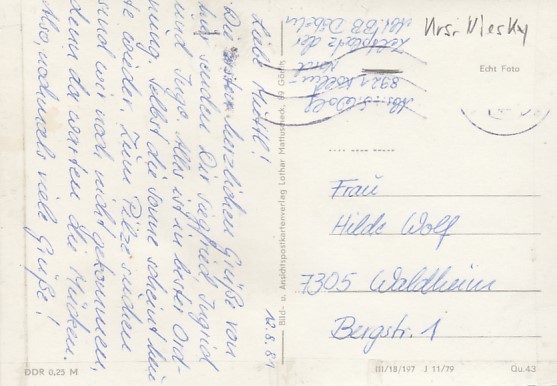 Liebe Muttl!
Die ersten herzlichen Grüße von
hier senden Dir Siegfried, Ingrid
und Ingo. Alles ist in bester Ord-
nung. Selbst die Sonne scheint heu-
te wieder. Zum Pilze suchen
sind wir noch nicht gekommen,
denn da warten die Mücken.
Also, nochmals viele Grüße!
12.8.81
DDR 0,25 M
Bild- u. Ansichtspostkartenverlag Lothar Matluscheck, 89 Görlitz
Krs. Niesky
Echt Foto
Abs.: S. Wolf
8921 Kollm
Abt. BB Döbeln
Frau
Hilde Wolf
7305 Waldheim
Bergstr. 1
III/18/197 J 11/79
Qu. 43